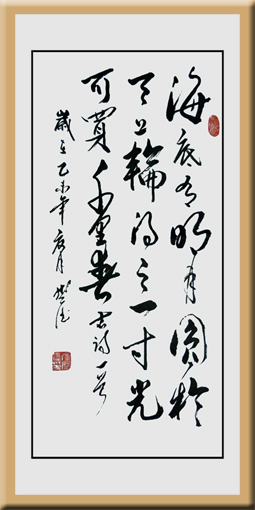 海底有明月圓於
天上輪得之一寸光
可買千里春古詩一首
歲在乙未年夏月